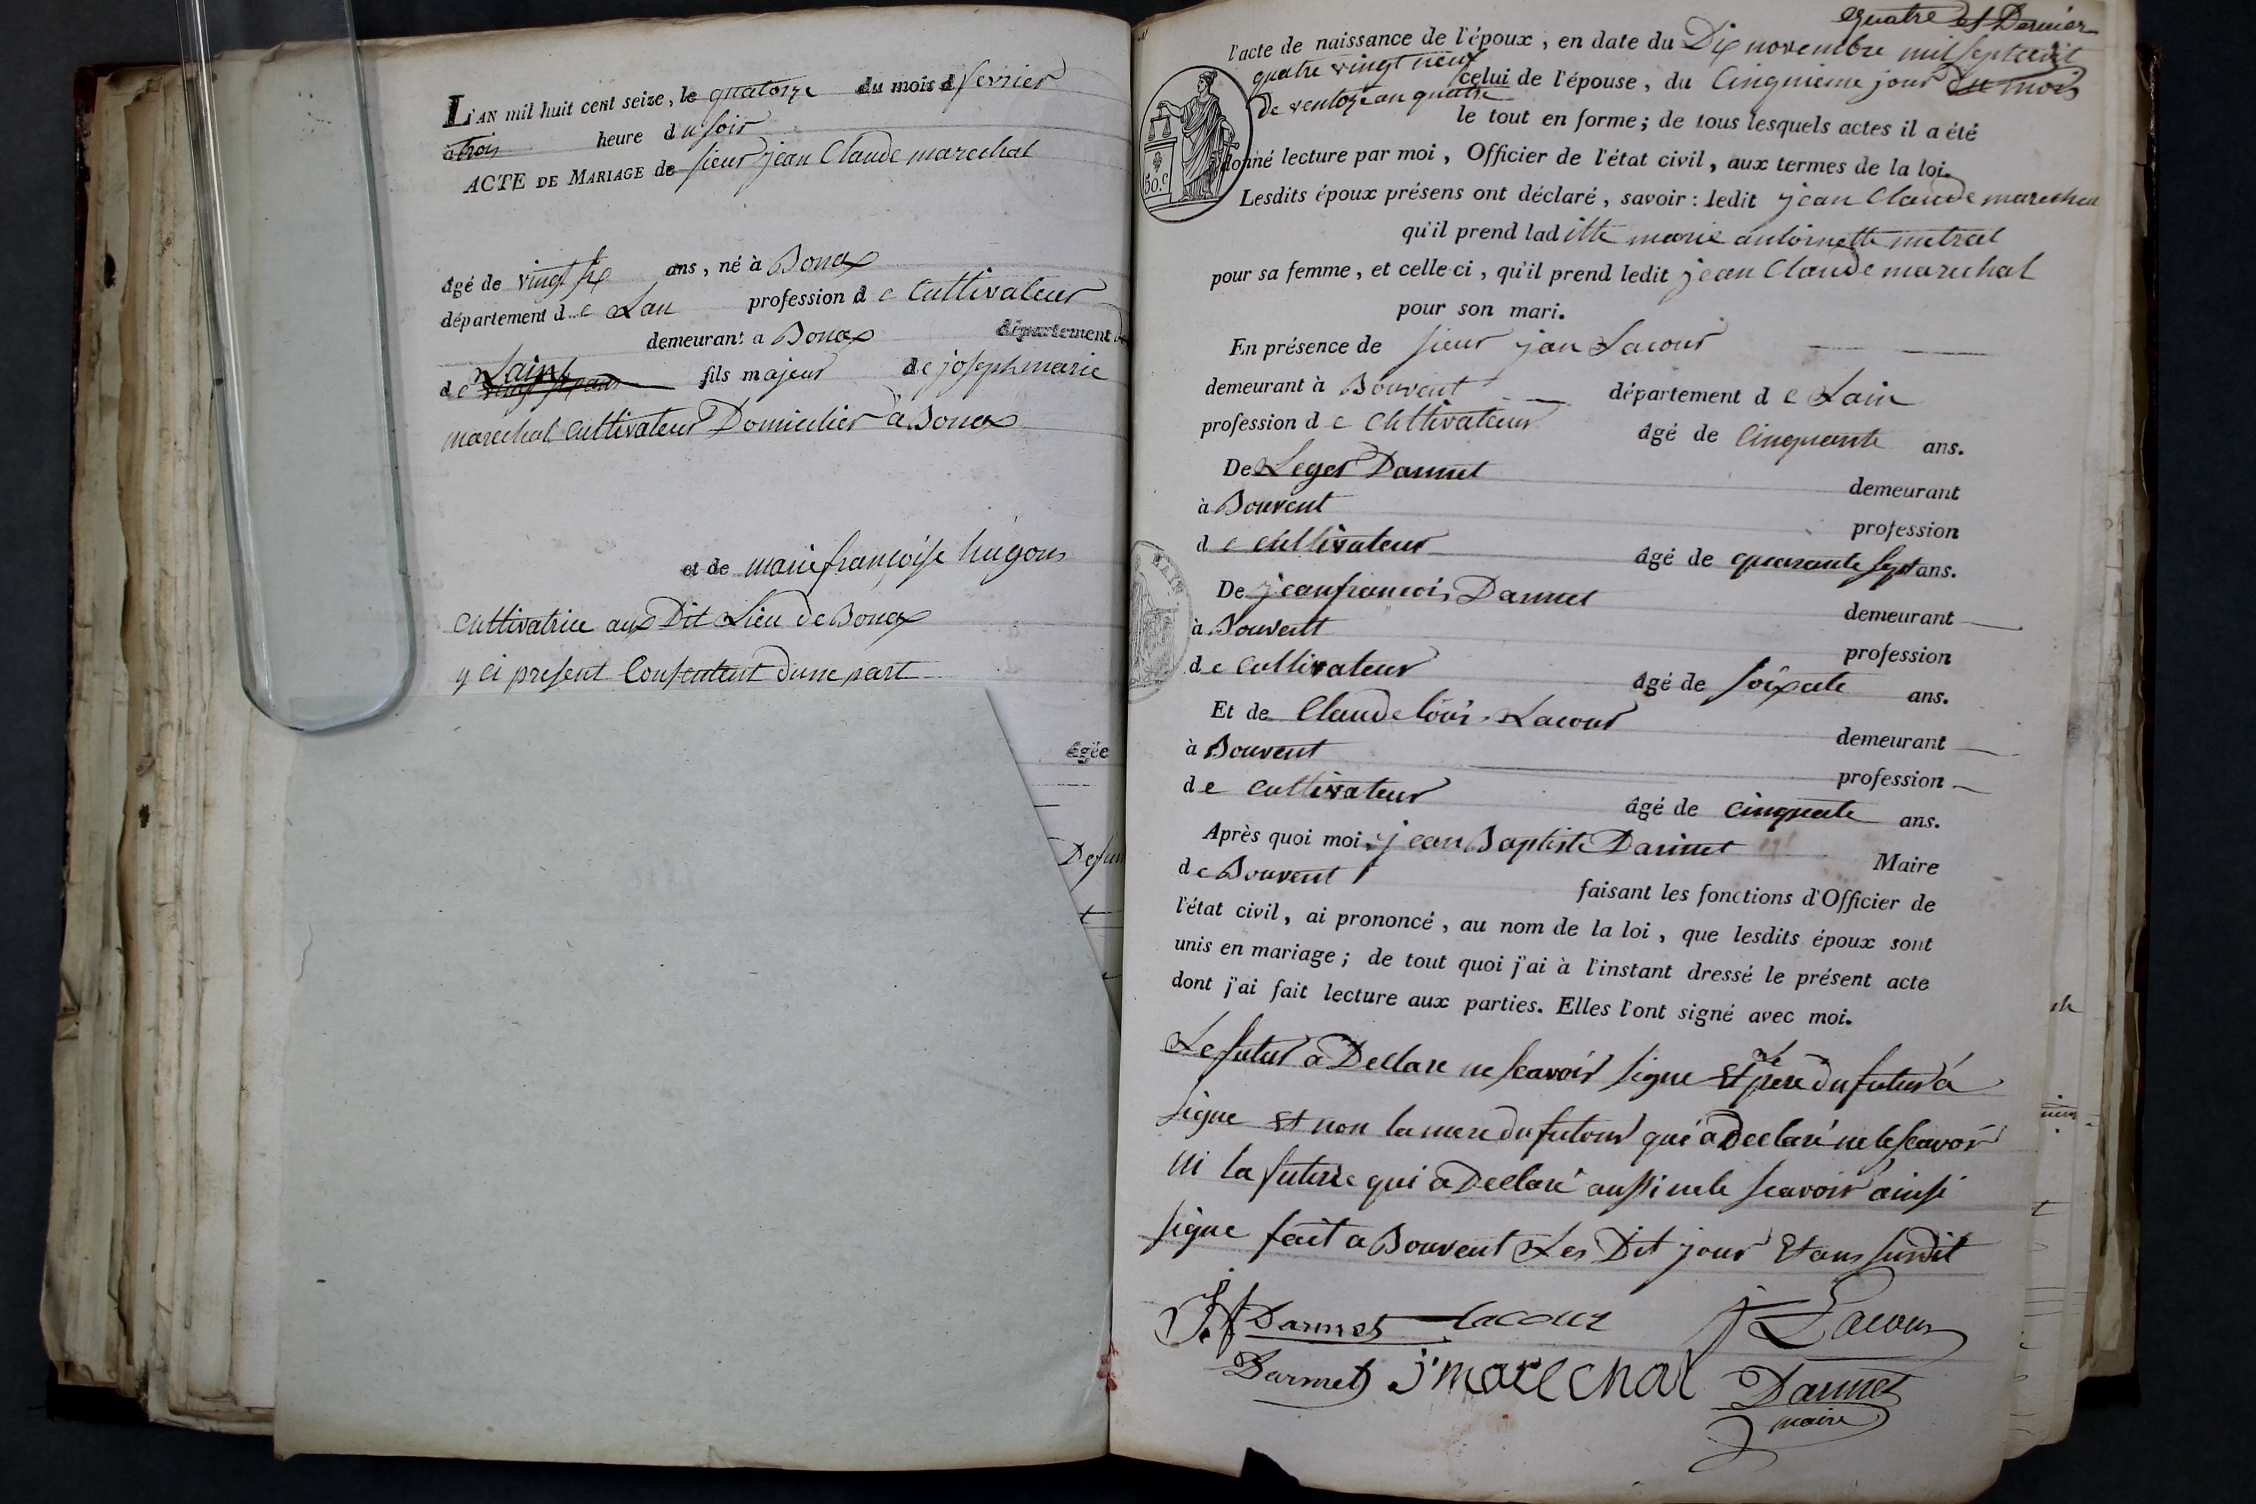 L'AN mil huit cent seize, le quatorze du mois d fevrier
a trois heure du soir
ACTE DE MARIAGE de sieur jean Claude marechal
âgé de vingt six ans, né à Bonax
département de Lan profession de Cultivateur
demeurant a Bonax département
de Lain fils majeur de joseph marie
marechal Cultivateur Domicilier a Bonax
et de marie françoise hugon
Cultivatrice aux Dit Lieu de Bonax
y ci present Consentent dune part
âgée
quatre et Dernier
l'acte de naissance de l'époux, en date du Dix novembre mil sept cent
quatre vingt neuf
celui de l'épouse, du Cinquieme jour du mois
de ventoze an quatre
le tout en forme; de tous lesquels actes il a été
donné lecture par moi, Officier de l'état civil, aux termes de la loi.
50.c
Lesdits époux présens ont déclaré, savoir: ledit jean Claude marechal
qu'il prend laditte marie antoinette metral
pour sa femme, et celle-ci, qu'il prend ledit jean Claude marechal
pour son mari.
En présence de sieur jean Lacour
demeurant à Bouvent département de Lain
profession de Cultivateur âgé de Cinquante ans.
De Leger Darmet demeurant
à Bouvent profession
de cultivateur âgé de quarante sept ans.
De jean francois Darmet demeurant
à Bouvent profession
de Cultivateur âgé de soixate ans.
Et de Claude louis Lacour demeurant
à Bouvent profession
de Cultivateur âgé de Cinquate ans.
Après quoi moi, jean Baptiste Darmet Maire
de Bouvent faisant les fonctions d'Officier de
l'état civil, ai prononcé, au nom de la loi, que lesdits époux sont
unis en mariage; de tout quoi j'ai à l'instant dressé le présent acte
dont j'ai fait lecture aux parties. Elles l'ont signé avec moi.
Le futur a Declare ne scavoir signe Et Le pere du futur a
signe Et non la mere du futour qui a Declaré ne le scavoir
ni la future qui a Declaré aussi ne le scavoir ainsi
signe fait a Bouvent Les Dit jour Et ans susdit
J.f Darmet Lacour j Lacour
Darmet j marechal Darmet
maire